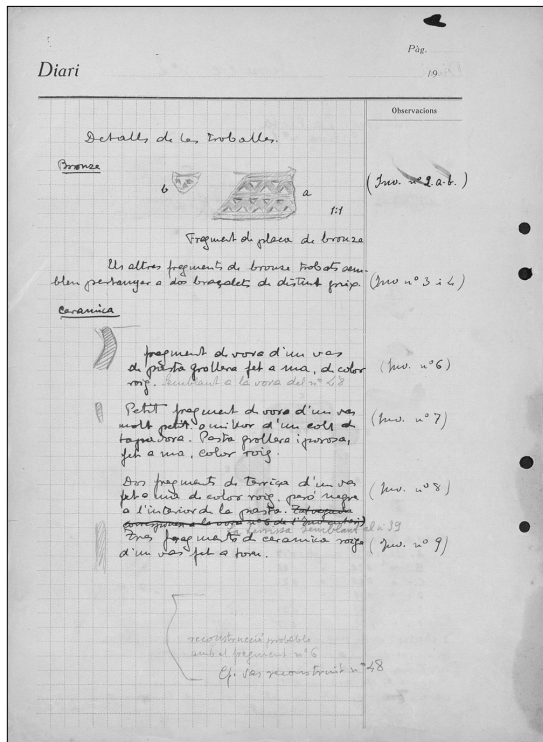 Pàg.
Diari
19
Observacions
Detalls de les troballes.
Bronze
b
a
1:1
(Inv. nº 2 a-b.)
Fragment de placa de bronze
Els altres fragments de bronze trobats sem-
blen pertanyer a dos braçalets de distint gruix. (Inv nº 3 i 4)
Ceramica
fragment de vora d'un vas
de pasta grollera fet a ma, de color (Inv. nº 6)
roig. Semblant a la vora del nº 48
Petit fragment de vora d'un vas
molt petit o millor d'un coll de (Inv. nº 7)
tapadora. Pasta grollera i porosa,
fet a ma, color roig.
Dos fragments de terrissa d'un vas
fet a ma de color roig, però negre (Inv. nº 8)
a l'interior de la pasta.
a la vora nº 6 de l'Inventari)
terrissa semblant al a 39
Tres fragments de ceramica roige (Inv. nº 9)
d'un vas fet a torn.
reconstrucció probable
amb el fragment nº 6
Cf. vas reconstruit nº 48